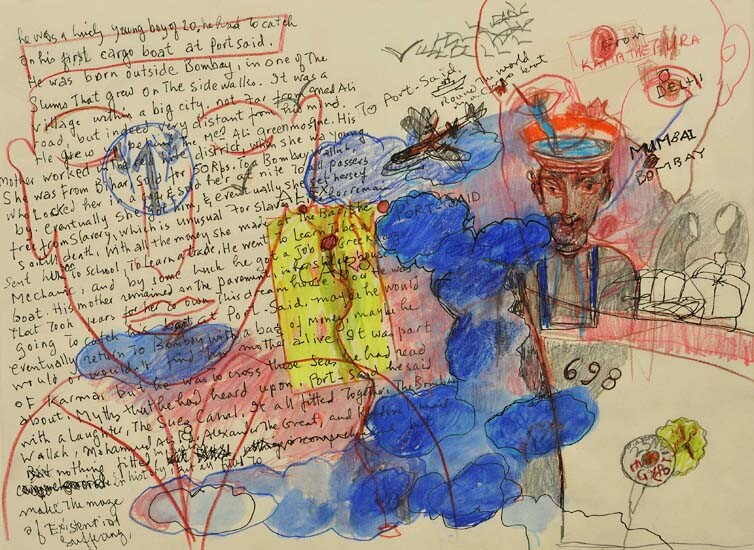 he was a lively young boy of 20, he had to catch
on his first cargo boat at Port Said.
He was born outside Bombay, in one of The
Slums That grew on The sidewalks. It was a
village within a big city, not far from Mohamed Ali
road, but indeed very distant from his mind.
He grew behind The Md Ali Green mosque. His
Mother worked in The district, when she was young
She was from Bihar, sold for 50 Rps. To a Bombay Wallah,
who Locked her in a & sold her at nite To all passers
by. Eventually She & eventually she set herself
free from Slavery, which is unusual For slaves
so till death. With all the money she made
sent him To School, To Learn a trade. He went To Learn To be a
Mechanic, and by some luck he got a Job on a Greek
boat. His mother remained on The pavement
That Took years for her to own. This dream he was
going To catch his boat at Port Said. maybe he would
eventually return to Bombay with a bag of money, maybe he
would or wouldn't find his mother alive. It was part
of Karma, but he was to cross These Seas he had read
about, Myths That he had heard upon. Port-Said he said
with a Laughter, The Suez Canal. It all fitted Together, The Bombay
Wallah, Mohamed Ali Rd, Alexander The Great, and
but nothing fitted
in history but all fitted to
make The maze
of Existential
Suffering.
To Port-Said
Round The world
in cargo boat
From
KAMATHEPURA
DELHI
MUMBAI
BOMBAY
PORT-SAID
698